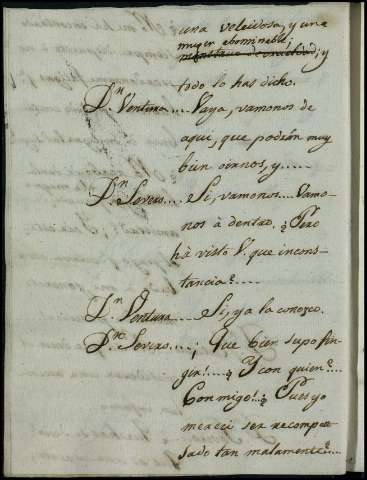 una veleidosa, y una
muger abominable,
monstruo de crueldad; y
todo lo has dicho.
D.ⁿ Ventura.... Vaya, vamonos de
aqui, que podràn muy
bien oirnos, y.....
D.ⁿ Severo.... Si, vamonos.... Vamo-
nos à dentro. ¿Pero
hà visto V. que incons-
tancia?....
D.ⁿ Ventura.... Si, ya la conozco.
D.ⁿ Severo....¡Que bien supo fin-
gir!....¿Y con quien?....
Conmigo!.¿Pues yo
mereci ser recompen-
sado tan malamente?....